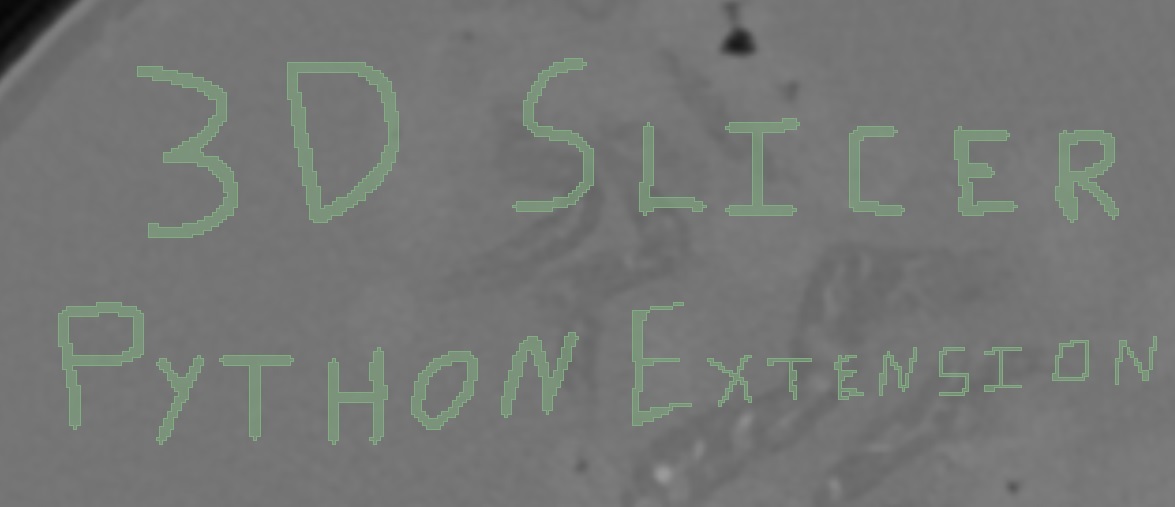 3D SLICER
PYTHON EXTENSION